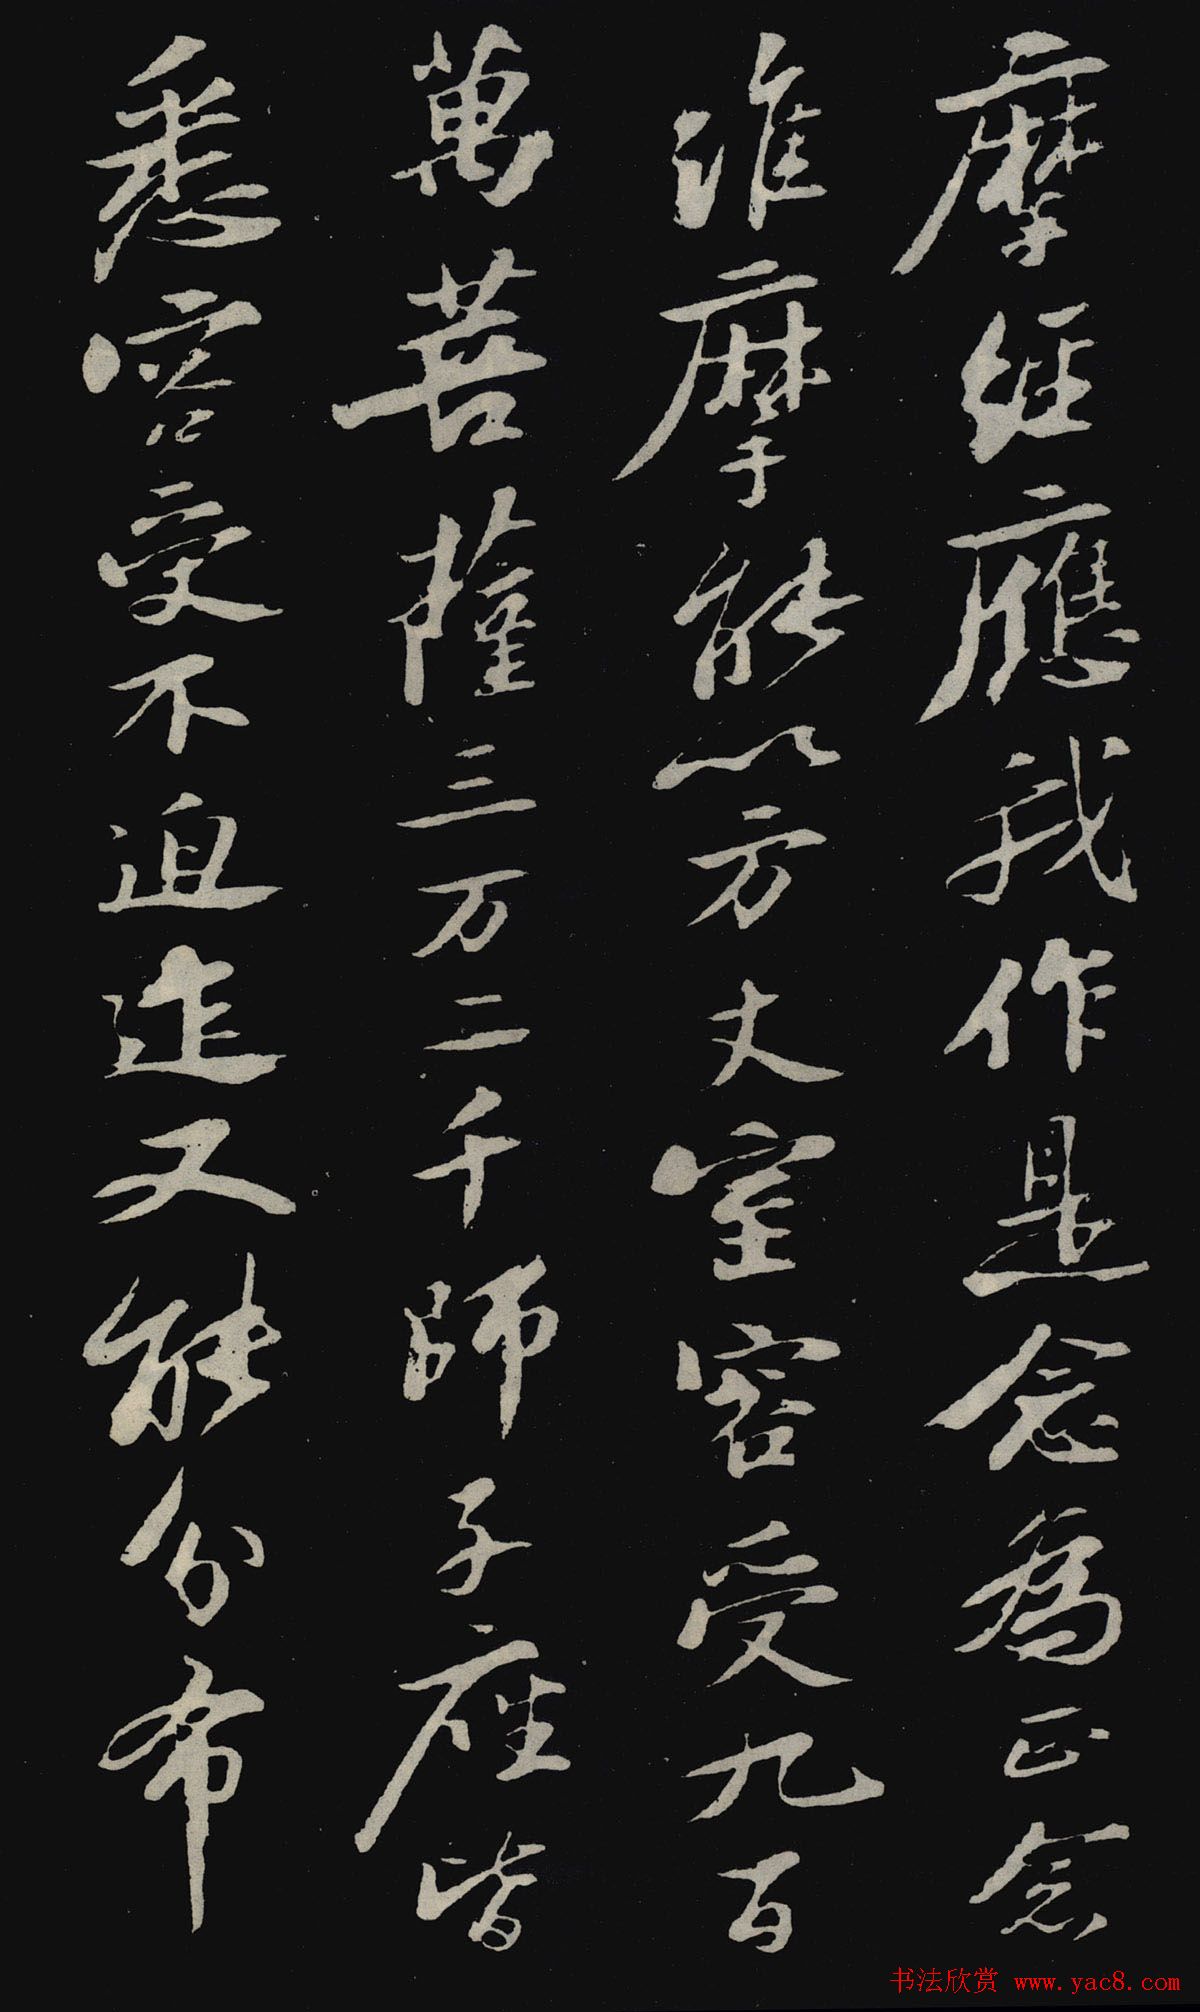 摩經應我作是念為正念
維摩能以方丈室容受九百
萬菩薩三万二千師子座皆
悉容受不迫迮又能分布
书法欣赏 www.yac8.com